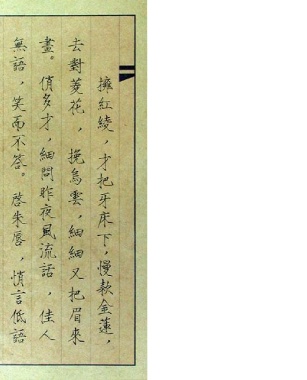 擁紅綾，才把牙床下，慢款金蓮，
去對菱花，挽烏雲，細細又把眉來
畫。俏多才，細問昨夜風流話，佳人
無語，笑而不答。啓朱唇，慎言低語